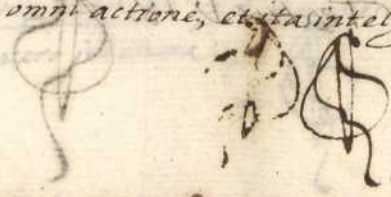 omni actione, et ita intel